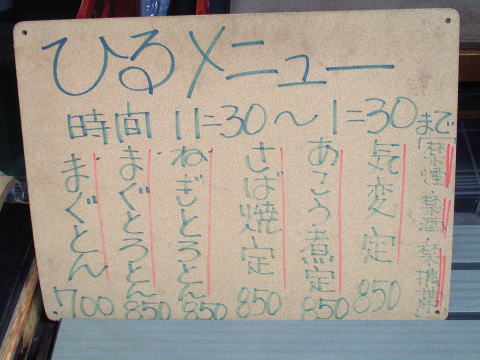 ひるメニュー
時間 11=30〜1=30まで
「禁煙・禁酒・禁携帯」
気変定 850
あこう煮定 850
さば焼定 850
ねぎとろとん 850
まぐとろとん 850
まぐとん 700